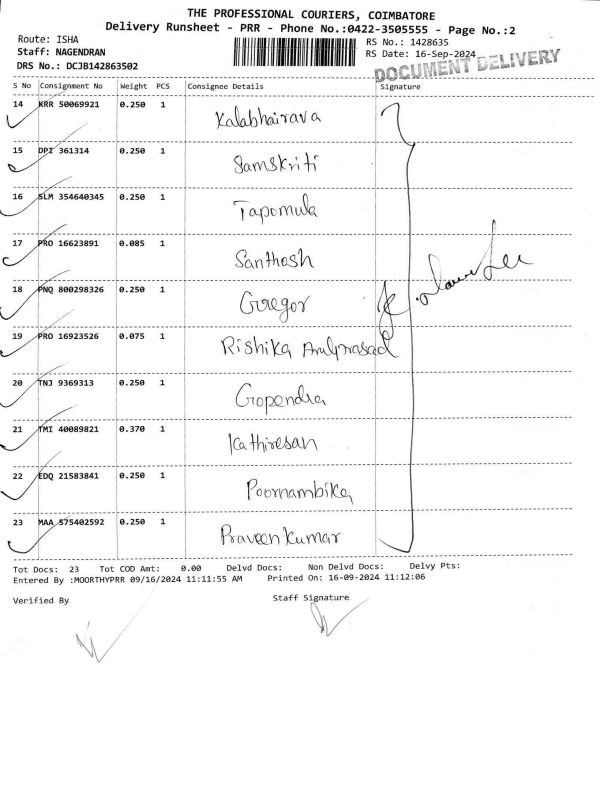 THE PROFESSIONAL COURIERS, COIMBATORE
Delivery Runsheet - PRR - Phone No.:0422-3505555 - Page No.:2
Route: ISHA
RS No.: 1428635
Staff: NAGENDRAN
RS Date: 16-Sep-2024
DRS No.: DCJB142863502
DOCUMENT DELIVERY
S No Consignment No Weight PCS Consignee Details Signature
14 KRR 50069921 0.250 1 Kalabhairava
15 DPI 361314 0.250 1 Samskriti
16 SLM 354640345 0.250 1 Tapomula
17 PRO 16623891 0.085 1 Santhosh
18 PNQ 800298326 0.250 1 Gregor
19 PRO 16923526 0.075 1 Rishika Arulprasad
20 TNJ 9369313 0.250 1 Gopendra
21 TMI 40089821 0.370 1 Kathiresan
22 EDQ 21583841 0.250 1 Poornambika
23 MAA 575402592 0.250 1 Praveen kumar
Tot Docs: 23 Tot COD Amt: 0.00 Delvd Docs: Non Delvd Docs: Delvy Pts:
Entered By :MOORTHYPRR 09/16/2024 11:11:55 AM Printed On: 16-09-2024 11:12:06
Verified By Staff Signature